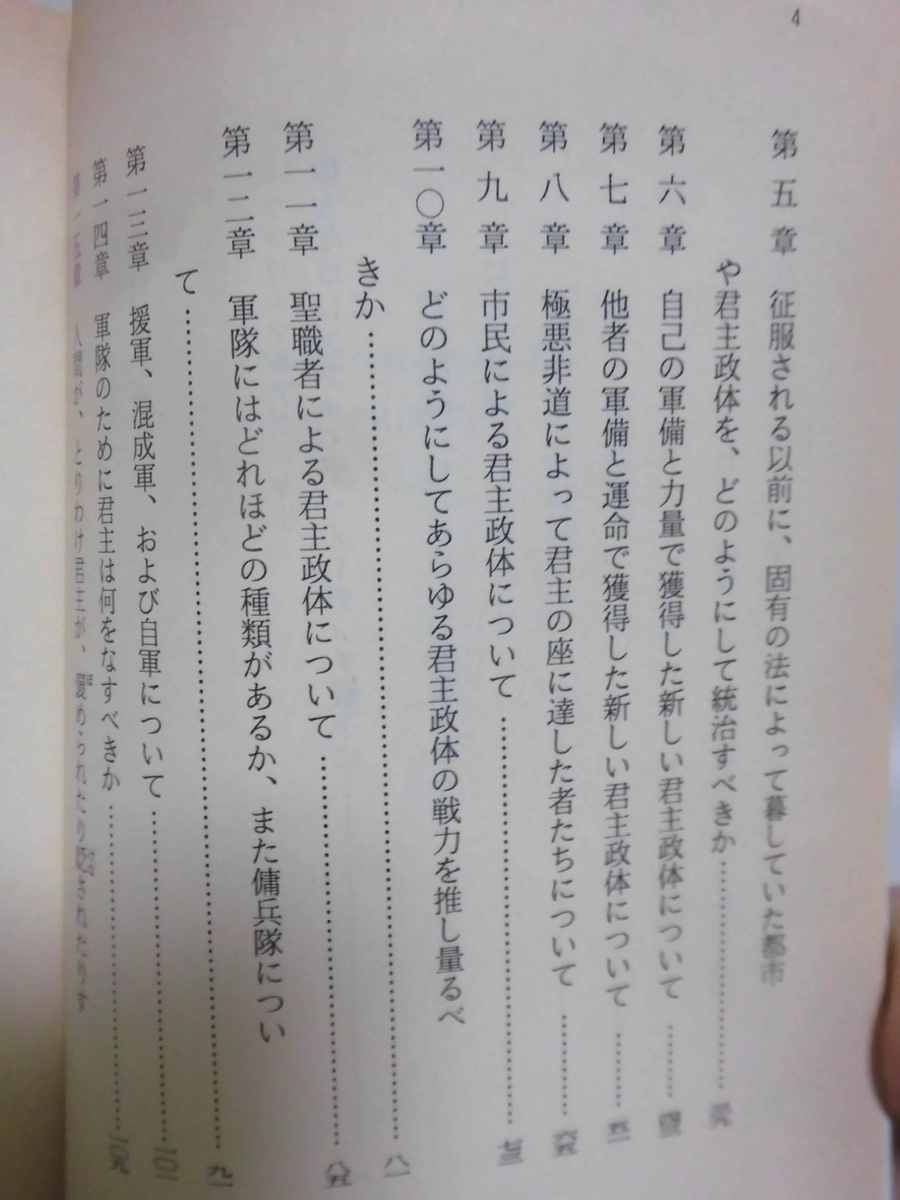 4
第五章 征服される以前に、固有の法によって暮していた都市
や君主政体を、どのようにして統治すべきか……………三九
第六章 自己の軍備と力量で獲得した新しい君主政体について……四三
第七章 他者の軍備と運命で獲得した新しい君主政体について……五一
第八章 極悪非道によって君主の座に達した者たちについて………六五
第九章 市民による君主政体について………………………………七三
第一〇章 どのようにしてあらゆる君主政体の戦力を推し量るべ
きか………………………………………………………………八一
第一一章 聖職者による君主政体について……………………………八五
第一二章 軍隊にはどれほどの種類があるか、また傭兵隊につい
て…………………………………………………………………九一
第一三章 援軍、混成軍、および自軍について………………………一〇一
第一四章 軍隊のために君主は何をなすべきか………………………一〇九
第一五章 人間が、とりわけ君主が、褒められたり貶されたりす